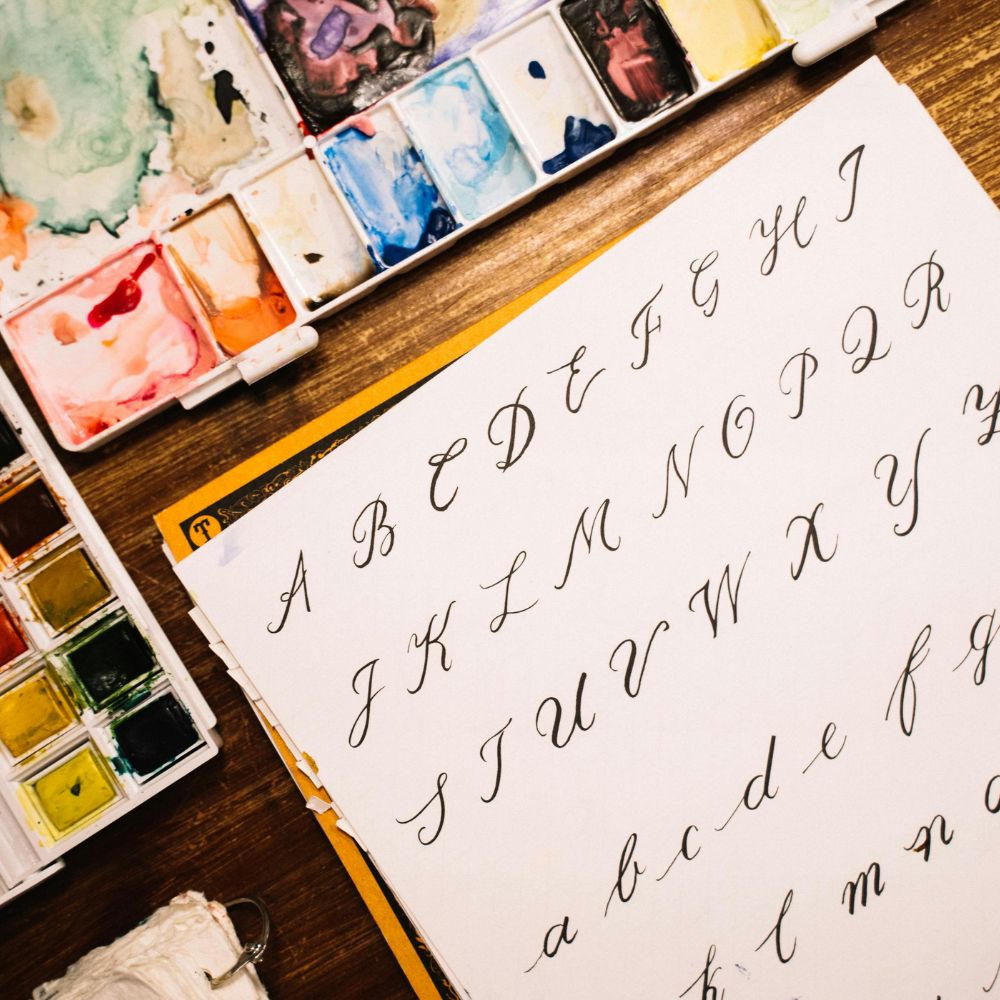 T
A B C D E F G H I
J K L M N O P Q R
S T U V W X Y
a b c d e f g
k l m n